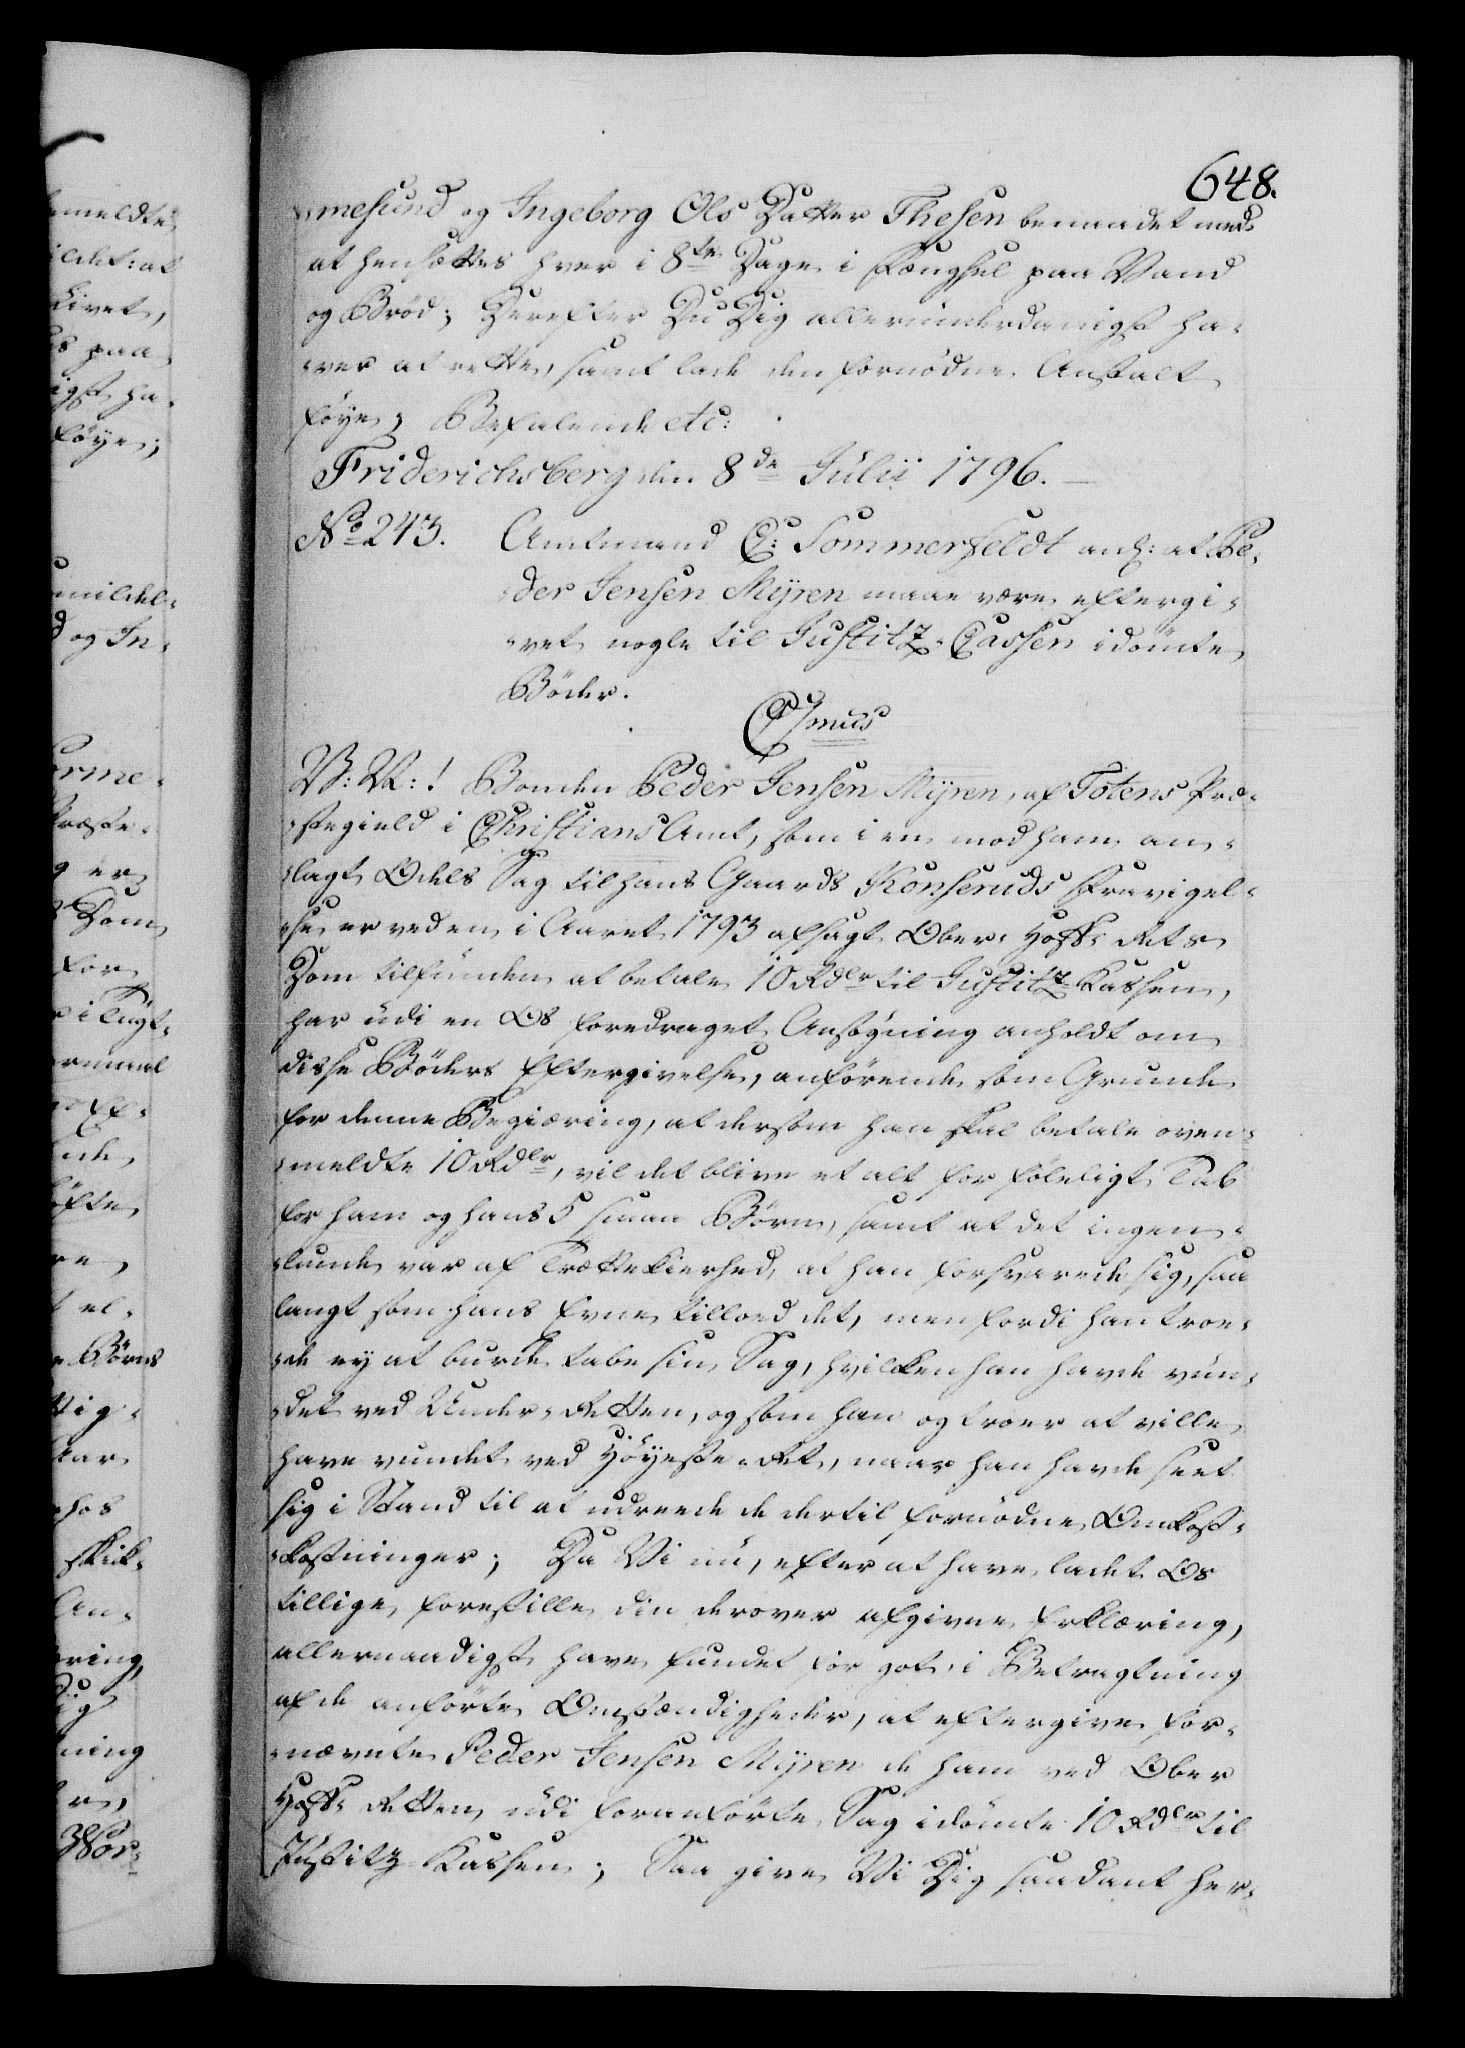 648.
:mesund og Ingeborg Ols Datter Thesen benaadet med
at hensættes hver i 8te Dage i Fængsel paa Vand
og Brød; Derefter Du Dig allerunderdanigst ha-
:ver at rette, samt lade den fornødne Anstalt
føye; Befalende etc:
Friderichsberg den 8de Julii 1796.
No 243. Amtmand C: Sommerfeldt anl: at Pe-
:der Jensen Mÿren maae være eftergi-
:vet nogle til Justitz-Cassen idømte
Bøder.
C 7mus
V: V:! Bonden Peder Jensen Mÿren, af Totens Præ-
:stegield i Christians Amt, som i en mod ham an-
:lagt Odels Sag til hans Gaards Konseruds Fravigel-
:se er ved en i Aaret 1793 afsagt Ober-Hoff-Rets
Dom tilfunden at betale 10 Rdlr til Justitz-Kassen,
har udi en Os foredraget Ansøgning anholdt om
disse Bøders Eftergivelse, anførende som Grunde
for denne Begiæring, at dersom han skal betale oven-
:meldte 10 Rdlr, vil det blive et alt for føleligt Tab
for ham og hans 5 smaa Børn, samt at det ingen-
:lunde var af Trættekierhed, at han forsvarede sig, saa
langt som hans Evne tillod det, men fordi han troe-
:de ey at burde tabe sin Sag, hvilken han havde vun-
:det ved Under-Retten, og som han og troer at ville
have vundet ved Höyeste-Ret, naar han havde seet
sig i Stand til at udreede de dertil fornødne Omkost-
:kostninger; Da Vi nu, efter at have ladet Os
tillige forestille din derover afgivne Erklæring,
allernaadigst have fundet for got, i Betragtning
af de anførte Omstændigheder, at eftergive for-
:nævnte Peder Jensen Mÿren de ham ved Ober
Hoff-Retten udi foranførte Sag idømte 10 Rdlr til
Justitz-Kassen; Saa give Vi Dig saadant her-